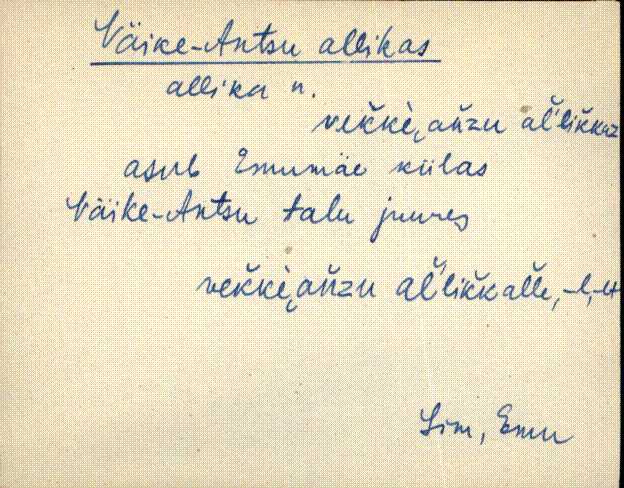 Väike-Antsu allikas
allika n.
veǩǩè, añzu al̆likkaz
asub Emumäe külas
Väike-Antsu talu juures
veǩǩè, añzu al̆liǩkal̆le, -l, -lt
Sim, Emu